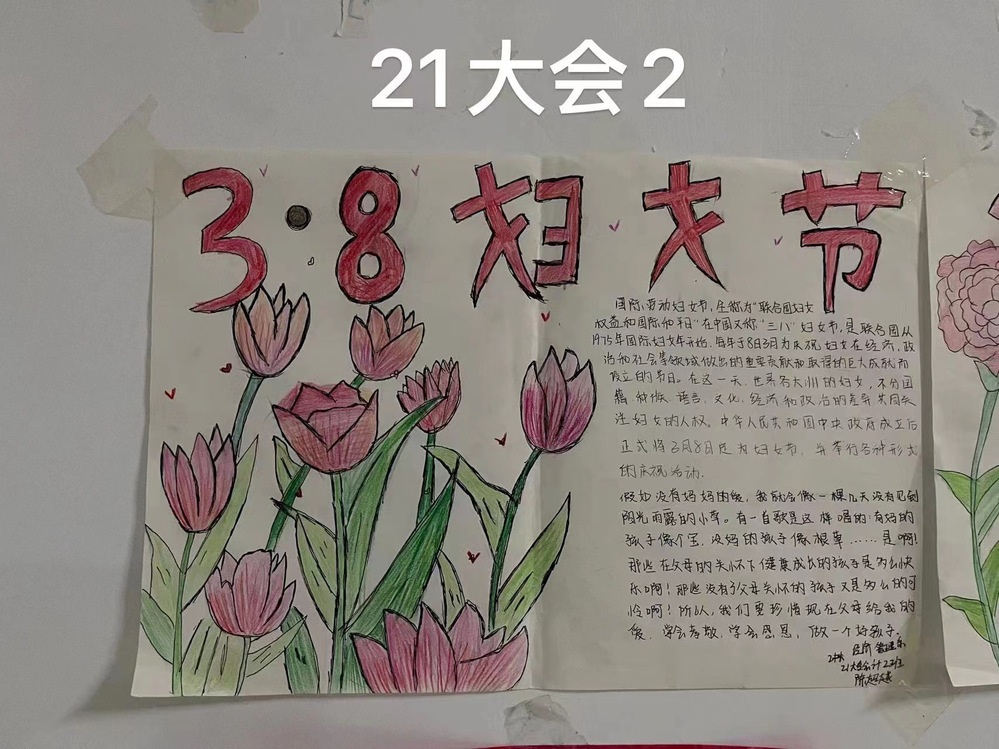 21大会2
3·8妇女节
国际劳动妇女节,全称为"联合国妇女
权益和国际和平日"在中国又称"三八"妇女节,是联合国从
1975年国际妇女年开始,每年于8日3月为庆祝妇女在经济,政
治和社会等领域做出的重要贡献和取得的巨大成就而
设立的节日。在这一天,世界各大洲的妇女,不分国
籍、种族、语言、文化、经济和政治的差异共同关
注妇女的人权。中华人民共和国中央政府成立后
正式将3月8日定为妇女节,并举行各种形式
的庆祝活动.
假如没有妈妈的爱,我就会像一棵几天没有见到
阳光雨露的小草。有一首歌是这样唱的:有妈的
孩子像个宝,没妈的孩子像根草……是啊!
那些在父母的关怀下健康成长的孩子是多么快
乐啊!那些没有父母关怀的孩子又是多么的可
怜啊!所以,我们要珍惜现在父母给我的
爱,学会孝敬,学会感恩,做一个好孩子.
经济管理系
21大会计2班